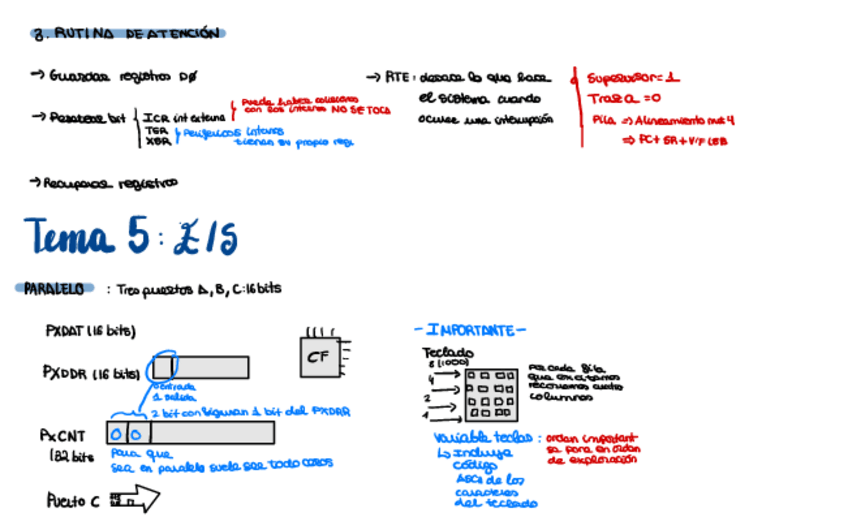 3. RUTINA DE ATENCIÓN
→ Guardar registros DØ
→ Resetear bit
ICR int externa
Puede haber colisiones
con las internas NO SE TOCA
TER
XER
Periféricos internos
tienen su propio reg.
→ Recuperar registros
→ RTE: desace lo que hace
el sistema cuando
ocurre una interrupción
Supervisor = 1
Traza = 0
Pila ⇒ Alineamiento mult 4
⇒ PC + SR + V/F
Tema 5: E/S
PARALELO : Tres puertos A, B, C: 16 bits
PXDAT (16 bits)
PXDDR (16 bits)
0 entrada
1 salida
2 bit configuran 1 bit del PXDDR
PxCNT
(32 bits
0 0
Para que
sea en paralelo suele ser todo ceros
Puerto C
CF
- IMPORTANTE -
Teclado
8 (1000)
4
2
1
Por cada fila
que excitamos
recorremos cuatro
columnas
Variable teclas : orden important
se pone en orden
de exploración
↳ Incluye
código
ASCII de los
caracteres
del teclado